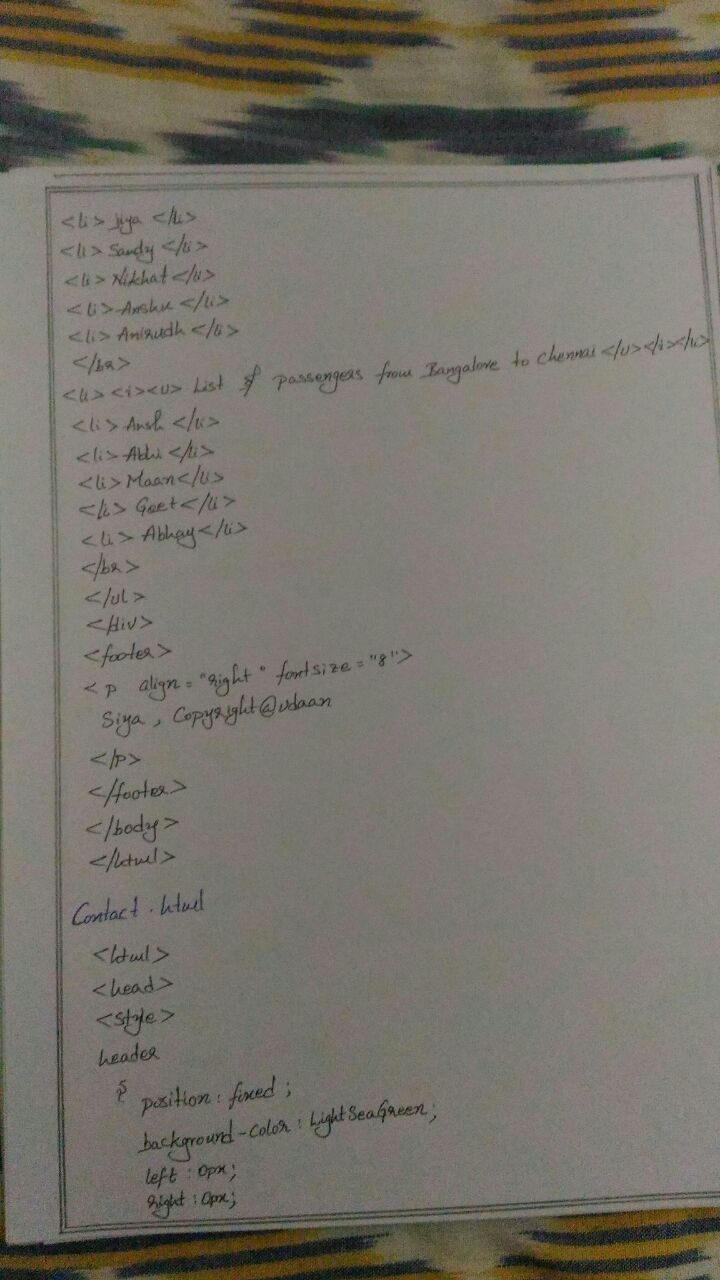 <li> Jiya </li>
<li> Sandy </li>
<li> Nikhat </li>
<li> Anshu </li>
<li> Anirudh </li>
</br>
<li> <i><u> List of passengers from Bangalore to chennai </u></i></li>
<li> Ansh </li>
<li> Abhi </li>
<li> Maan </li>
<li> Geet </li>
<li> Abhay </li>
</br>
</ul>
</div>
<footer>
<p align = "right" fontsize = "8">
Siya, Copyright@udaan
</p>
</footer>
</body>
</html>
Contact.html
<html>
<head>
<style>
header
{
position: fixed;
background-color: LightSeaGreen;
left: 0px;
right: 0px;